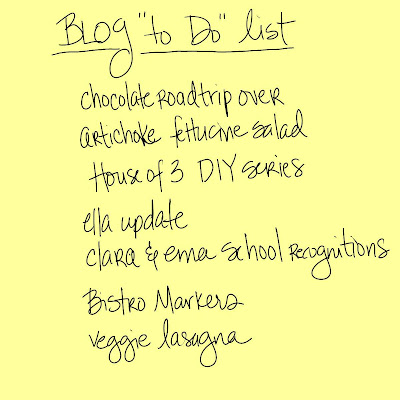 Blog "to Do" list
chocolate roadtrip over
artichoke fettucine salad
House of 3 DIY series
ella update
clara & ema school recognitions
Bistro Markers
veggie lasagna